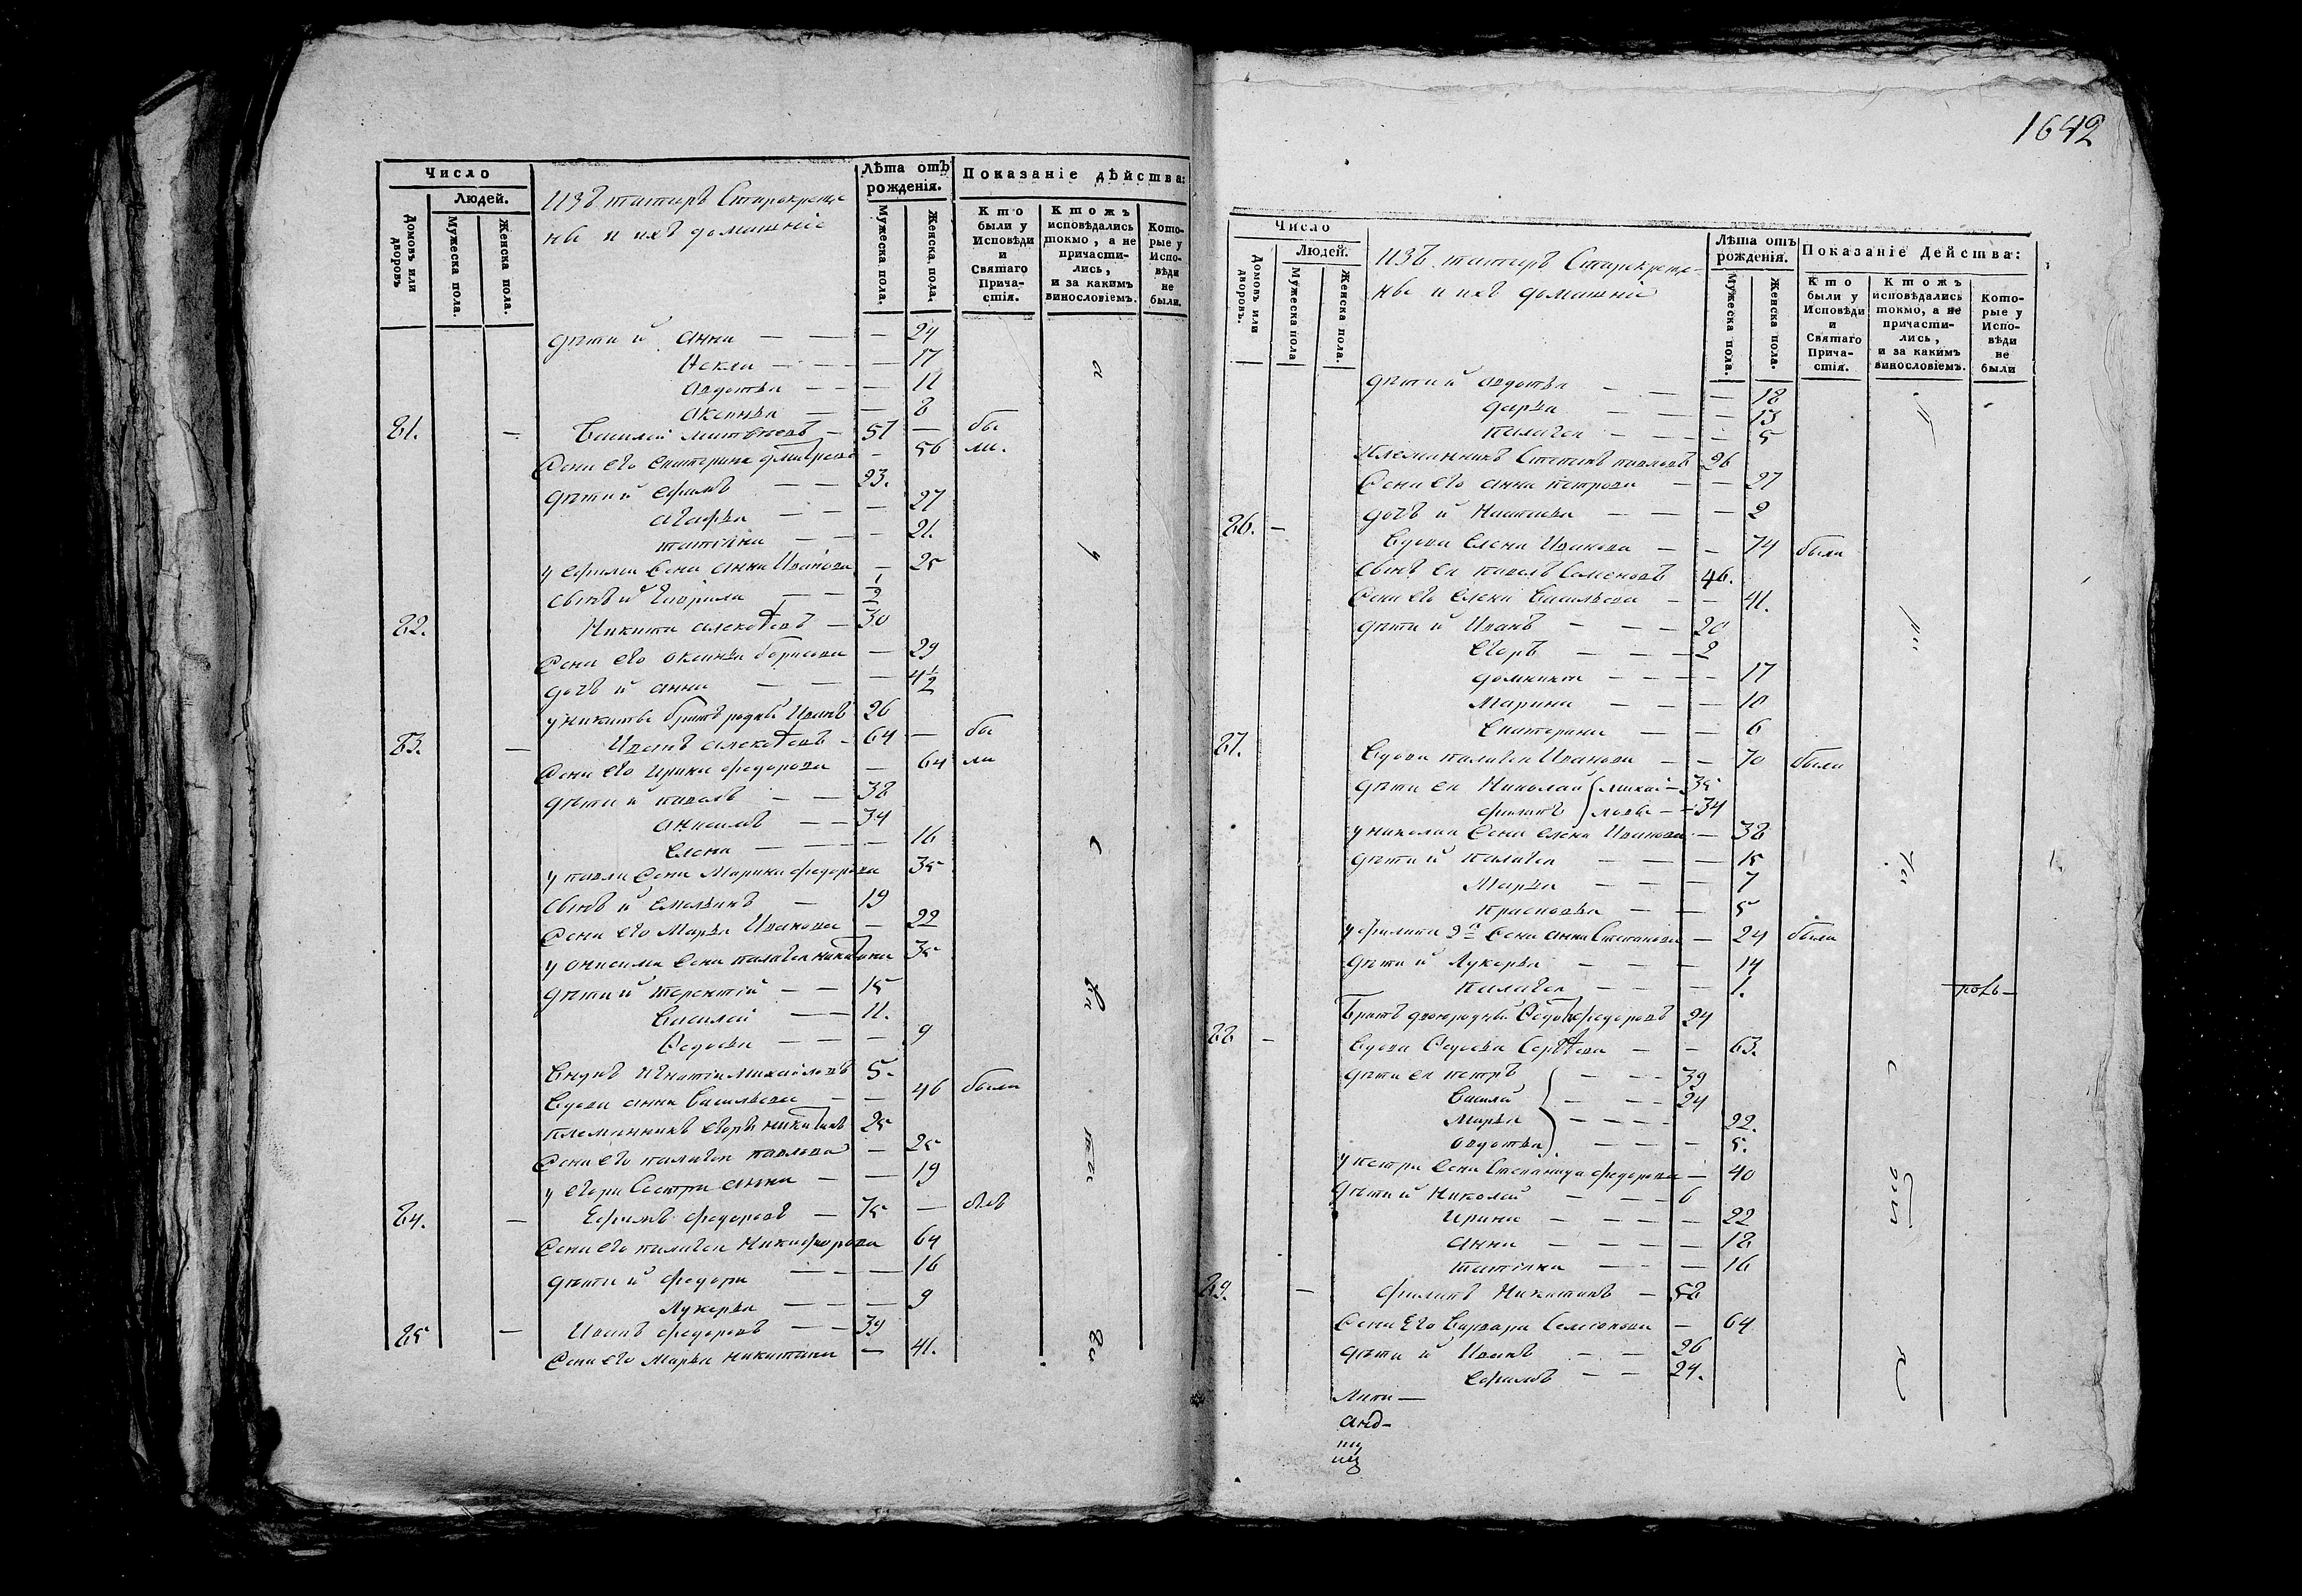 Число
Людей.
Домовъ или дворовъ
Мужеска пола.
Женска пола.
Изъ татаръ Старокреще
ны и ихъ домашніе
Лѣта отъ
рожденія.
Мужеска пола.
Женска пола.
Показаніе дѣйства:
Кто были у Исповѣди и Святаго Причастія.
Ктожъ исповѣдались токмо, а не причастились, и за какимъ винословіемъ.
Которые у Исповѣди не были.
дѣти и Анна — — — 24
Фекла — — — 17
Авдотья — — — 11
Аксинья — — 8
81. — Василей — 57 — бы
Жена его Екатерина — 56 ли.
дѣти и Ефимъ — — 23.
Агафья — — — 27
Татіяна — — — 21.
у Ефима жена Анна Иванова — 25
сынъ и Гаврила — — 1/2
82. Никита Алексѣевъ — 30
Жена его Оксинья Борисова — 29
дочь и Анна — — — 4 1/2
у Никиты братъ родны Иванъ 26
83. — Иванъ Алексѣевъ — 64 — бы
Жена его Ирина Федорова — 64 ли
дѣти и Павелъ — — 38
Анисимъ — — 34
Елена — — — — 16
у Павла жена Марина Федорова 35
сынъ и Емельянъ — 19
Жена его Марья Иванова — 22
у Онисима жена Палагея Никитина 35
дѣти и Терентій — — 15
Василей — — 11.
Федосья — — — 9
Внукъ Игнати Михайловъ 5.
Вдова Анна Васильева — — 46 была
Племянникъ Егоръ Никитинъ 25
Жена его Палагея Павлова — 25
у Егора сестра Анна — — 19
84. — Ефимъ Федоровъ — 75 — былъ
Жена его Палагея Никифорова 64
дѣти и Федора — — — 16
Лукерья — — — 9
85 — Иванъ Федоровъ — — 39
Жена его Марья Никитина — 41.
1642
Число
Людей.
Домовъ или дворовъ.
Мужеска пола
Женска пола.
Изъ татаръ Старокреще-
ны и ихъ домашніе
Лѣта отъ
рожденія.
Мужеска пола.
Женска пола.
Показаніе Действа:
Кто были у Исповѣди и Святаго Причастія.
Ктожъ исповѣдались токмо, а не причастились, и за какимъ винословіемъ.
Которые у Исповѣди не были
дѣти и Авдотья — — — 18
Дарья — — — 13
Палагея — — — 5
Племянникъ Степанъ Павловъ 26
Жена его Анна Петрова — — 27
дочь и Настасья — — — 2
86. — Вдова Елена Иванова — — 74 была
сынъ ея Павелъ Семеновъ 46.
Жена его Елена Васильева — — 41.
дѣти и Иванъ — — — 20
Егоръ — — — 2
Домника — — — — 17
Марина — — — 10
Екатерина — — 6
87. Вдова Палагея Иванова — — 70 была
дѣти ея Николай Михай — 35
Филипъ ловы — — 34
у Николая жена Елена Иванова — 38
дѣти и Палагея — — — 15
Марья — — — 7
— — 5
у Филипа 2я жена Анна Степанова — 24 была
дѣти и Лукерья — — — 14
Палагея — — — 1.
Братъ двоюродный Федоровъ 24
88 — Вдова Федосья Сергѣева — — 63.
дѣти ея Петръ — — — 39
Василей — — — 24
Марья — — — — 22.
Авдотья — — — 5.
у Петра жена Степанида Федорова — 40
дѣти и Николай — — — 6
Ирина — — — — 22
Анна — — — — 18
Татіяна — — — 16
89. — Филипъ Никитинъ — 58
Жена его Варвара Семенова — 64
дѣти и Иванъ — — 26
Ефимъ — — 24.